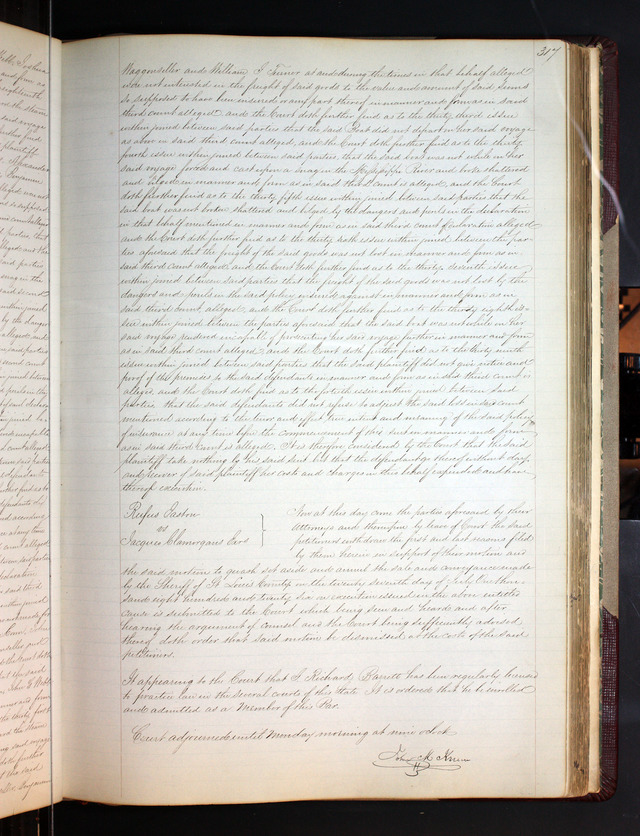 317
Waggondeller and William J. Turner as and during the times in that behalf alleged
were not interested in the freight of said goods to the value and amount of said sums
so supposed to have been insured or any part thereof in manner and form as in said
third count alleged. and the Court doth further find as to the thirty third issue
within joined between said parties that the said Boat did not depart on her said voyage
as above in said third count alleged, and the Court doth further find as to the thirty
fourth issue within joined between said parties, that the said boat was not while on her
said voyage forced and cast upon a snag in the Mississippi River and broke shattered
and bilged in manner and form as in said third count is alleged, and the Court
doth further find as to the thirty fifth issue within joined between said parties that the
said boat was not broken shattered and bilged by the dangers and perils in the declaration
in that behalf mentioned in manner and form as in said third count of declaration alleged
and the Court doth further find as to the thirty sixth issue within joined between the par-
ties aforesaid that the freight of the said goods was not lost in manner and form as in
said third count alleged, and the Court doth further find as to the thirty seventh issue
within joined between said parties that the freight of the said goods was not lost by the
dangers and perils in the said policy insured against in manner and form as in
said third count alleged, and the Court doth further find as to the thirty eighth is-
sue within joined between the parties aforesaid that the said boat was not while on her
said voyage rendered incapable of prosecuting her said voyage further in manner and form
as in said third count alleged, and the Court doth further find as to the thirty ninth
issue within joined between said parties that the said plaintiff did not give notice and
proof of the premises to the said defendants in manner and form as in said third count is
alleged, and the Court doth find as to the fortieth issue within joined between said
parties that the said defendants did not refuse to adjust the said loss in said count
mentioned according to the true intent and meaning of the said policy
of insurance at any time before the commencement of this suit in manner and form
as in said third Count is alleged. It is therefore considered by the Court that the said
plaintiff take nothing by his said suit but that the defendants go thereof without day
and recover of said plaintiff her costs and charges in this behalf expended and have
thereof execution.
Rufus Easton
vs
Jacques Clamorgans Exrs
Now at this day come the parties aforesaid by their
Attorneys and thereupon by leave of Court the said
petitioners withdraw the first and last reasons filed
by them herein in support of their motion and
the said motion to quash set aside and annul the sale and conveyance made
by the Sheriff of St Louis County on the twenty seventh day of July One thou-
sand eight hundred and twenty six on execution issued in the above entitled
cause is submitted to the Court which being seen and heard and after
hearing the argument of counsel and the Court being sufficiently advised
thereof doth order that said motion be dismissed at the costs of the said
petitioners.
It appearing to the Court that J Richard Barrett has been regularly licensed
to practice law in the several courts of this State It is ordered that he be enrolled
and admitted as a Member of this Bar.
Court adjourned until Monday morning at nine oclock
John M Krum